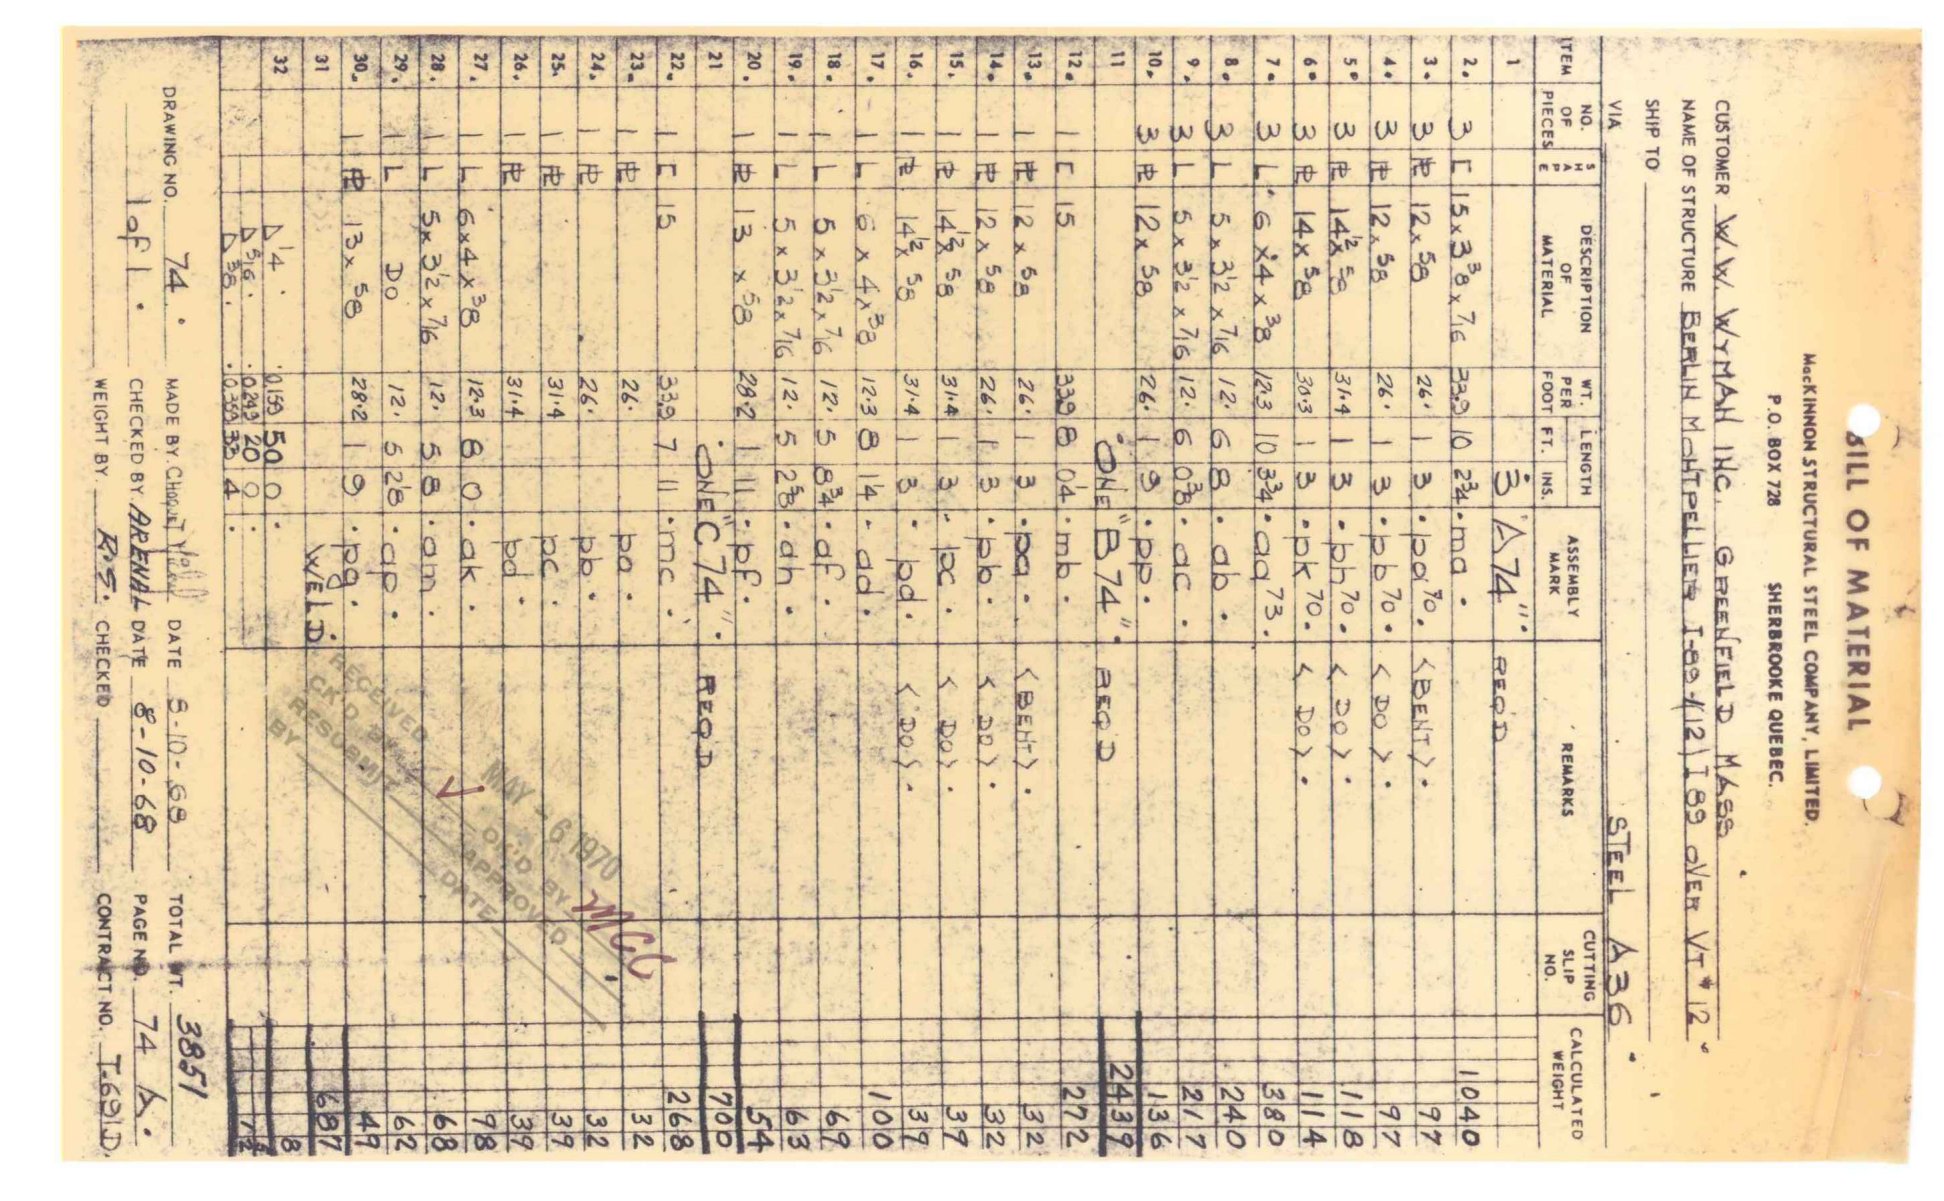 BILL OF MATERIAL
MacKINNON STRUCTURAL STEEL COMPANY, LIMITED.
P.O. BOX 728 SHERBROOKE QUEBEC.
CUSTOMER W.W. WYMAN INC. GREENFIELD MASS
NAME OF STRUCTURE BERLIN MONTPELLIER I-89-1(12) I 89 OVER VT # 12
SHIP TO
VIA STEEL A36
ITEM NO. OF PIECES SHAPE DESCRIPTION OF MATERIAL WT. PER FOOT LENGTH FT. INS. ASSEMBLY MARK REMARKS CUTTING SLIP NO. CALCULATED WEIGHT
1 3 "A74". REQ'D
2. 3 [ 15 x 3 3/8 x 7/16 33.9 10 2 3/4 ma. 1040
3. 3 PL 12 x 5/8 26. 1 3 pa 70. <BENT>. 97
4. 3 PL 12 x 5/8 26. 1 3 pb 70. <DO>. 97
5. 3 PL 14 1/2 x 5/8 31.4 1 3 ph 70. <DO>. 118
6. 3 PL 14 x 5/8 30.3 1 3 pk 70. <DO>. 114
7. 3 L 6 x 4 x 3/8 12.3 10 3 3/4 aa 73. 380
8. 3 L 5 x 3 1/2 x 7/16 12. 6 8 ab. 240
9. 3 L 5 x 3 1/2 x 7/16 12. 6 0 3/8 ac. 217
10. 3 PL 12 x 5/8 26. 1 9 pp. 136
11 ONE "B74". REQ'D 2439
12. 1 [ 15 33.9 8 0 1/4 mb. 272
13. 1 PL 12 x 5/8 26. 1 3 pa. <BENT>. 32
14. 1 PL 12 x 5/8 26. 1 3 pb. <DO>. 32
15. 1 PL 14 1/2 x 5/8 31.4 1 3 pc. <DO>. 39
16. 1 PL 14 1/2 x 5/8 31.4 1 3 pd. <DO>. 39
17. 1 L 6 x 4 x 3/8 12.3 8 1/4 ad. 100
18. 1 L 5 x 3 1/2 x 7/16 12. 5 8 3/4 af. 69
19. 1 L 5 x 3 1/2 x 7/16 12. 5 2 3/8 ah. 63
20. 1 PL 13 x 5/8 28.2 1 11 pf. 54
21 ONE "C74". REQ'D 700
22. 1 [ 15 33.9 7 11 mc. 268
23. 1 PL 26. pa. 32
24. 1 PL 26. pb. 32
25. 1 PL 31.4 pc. 39
26. 1 PL 31.4 pd. 39
27. 1 L 6 x 4 x 3/8 12.3 8 0 ak. 98
28. 1 L 5 x 3 1/2 x 7/16 12. 5 8 am. 68
29. 1 L DO 12. 5 2 1/8 ap. 62
30. 1 PL 13 x 5/8 28.2 1 9 pg. 49
31 WELD. 687
32 1/4. 0.159 50 0. 8
5/16. 0.249 20 0.
3/8. 0.359 33 4.
RECEIVED MAY - 6 1970
CK'D BY OK'D BY MCC
RESUBMIT APPROVED
BY DATE
DRAWING NO. 74. MADE BY. DATE 8-10-68 TOTAL WT. 3851
1 of 1. CHECKED BY. ARENAL DATE 8-10-68 PAGE NO. 74 A.
WEIGHT BY. R.S. CHECKED CONTRACT NO. T-691D.